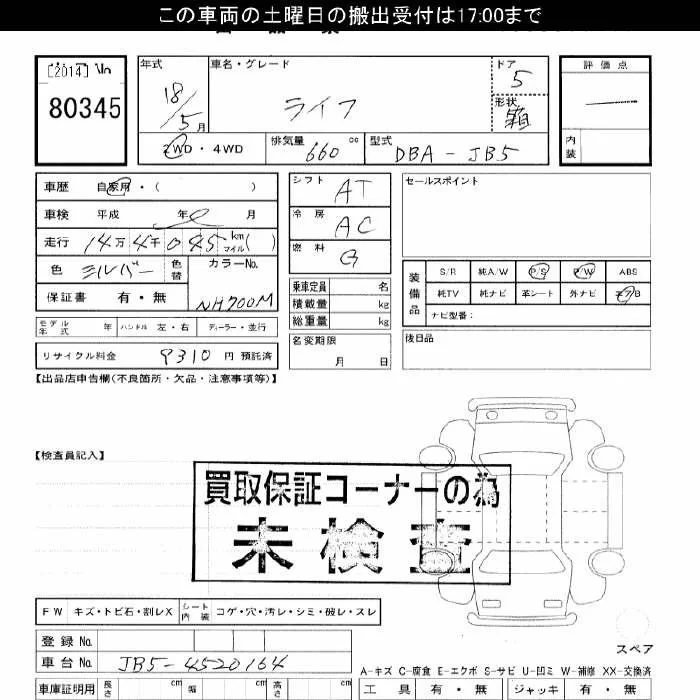 この車両の土曜日の搬出受付は17:00まで
[2014] No
80345
年式 車名・グレード ドア 評価点
18/5月 ライフ 5
形状 箱
2WD・4WD 排気量 660 cc 型式 DBA-JB5
内装
車歴 自家用・( )
シフト AT
セールスポイント
車検 平成 年 月
冷房 AC
走行 14万4千045 km マイル( )
燃料 G
色 シルバー 色替 カラーNo. NH700M
保証書 有・無
乗車定員 名
積載量 kg
総重量 kg
装備品 S/R 純A/W P/S P/W ABS
純TV 純ナビ 革シート 外ナビ エアB
ナビ型番:
モデル年式 年 ハンドル 左・右 ディーラー・並行
名変期限 月 日
後日品
リサイクル料金 9310 円 預託済
【出品店申告欄(不良箇所・欠品・注意事項等)】
【検査員記入】
買取保証コーナーの為
未検査
FW キズ・トビ石・割レX シート内装 コゲ・穴・汚レ・シミ・破レ・スレ
登録No
車台No JB5-4520164
スペア
A-キズ C-腐食 E-エクボ S-サビ U-凹ミ W-補修 XX-交換済
車庫証明用 長さ cm 幅 cm 高さ cm 工具 有・無 ジャッキ 有・無